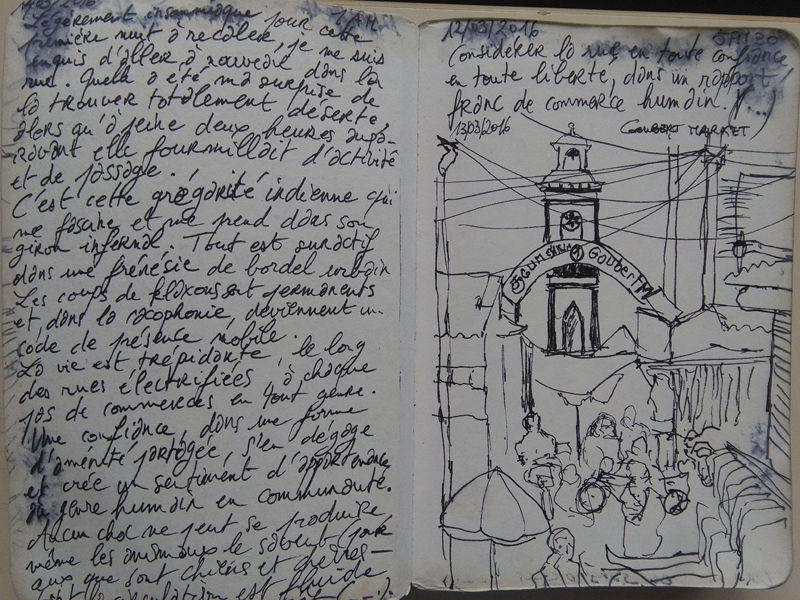 Légèrement insomniaque pour cette
première nuit à recaler, je me suis
enquis d'aller à nouveau dans la
rue. Quelle a été ma surprise de
la trouver totalement déserte,
alors qu'à peine deux heures aupa-
ravant elle fourmillait d'activité
et de passage.
C'est cette grégarité indienne qui
me fascine et me prend dans son
giron infernal. Tout est suractif
dans une frénésie de bordel urbain
Les coups de klaxons sont permanents
et, dans la cacophonie, deviennent un
code de présence mobile.
La vie est trépidante, le long
des rues électrifiées, à chaque
pas de commerces en tout genre.
Une confiance, dans une forme
d'aménité partagée, s'en dégage
et crée un sentiment d'appartenance
au genre humain en communauté.
Aucun choc ne peut se produire
même les animaux le savent (pour
ceux que sont chiens et chèvres-
la circulation est fluide
12/03/2016
5AM30
Considérer la rue en toute confiance,
en toute liberté, dans un rapport
franc de commerce humain. (...)
13/03/2016 GOUBERT MARKET
Goubert M